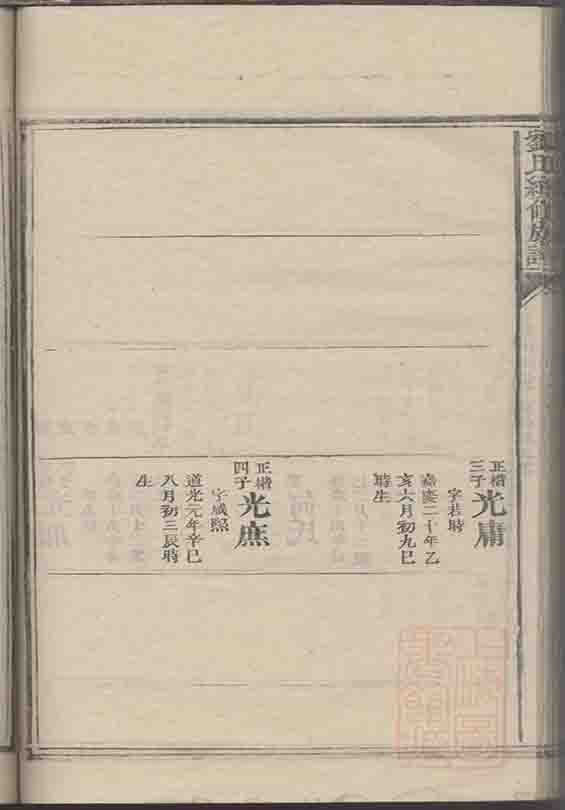 劉氏續修族譜
正楷
三子
光庸
字若時
嘉慶二十年乙
亥六月初九巳
時生
正楷
四子
光庶
字咸熙
道光元年辛巳
八月初三辰時
生